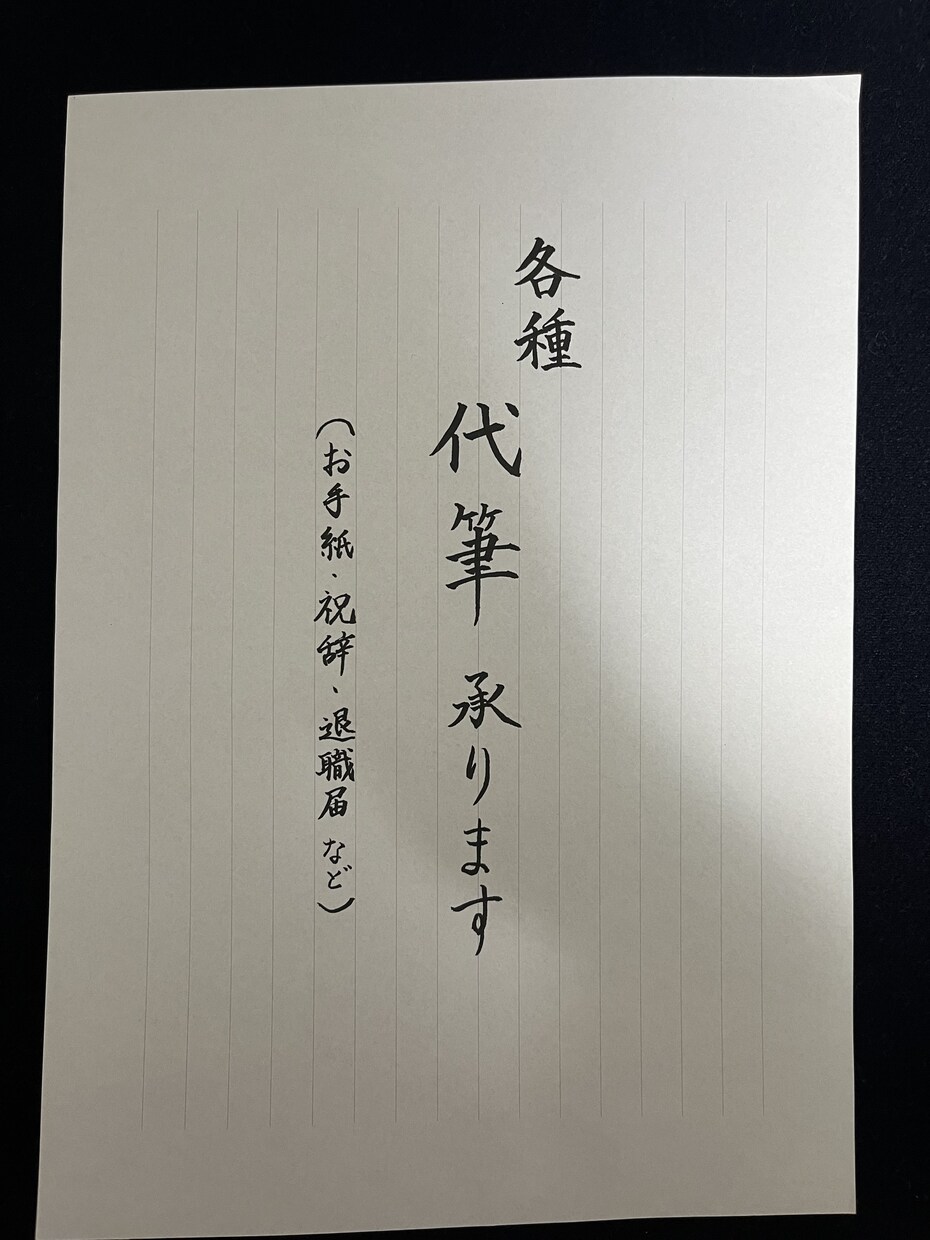 各種
代筆 承ります
(お手紙、祝辞、退職届 など)